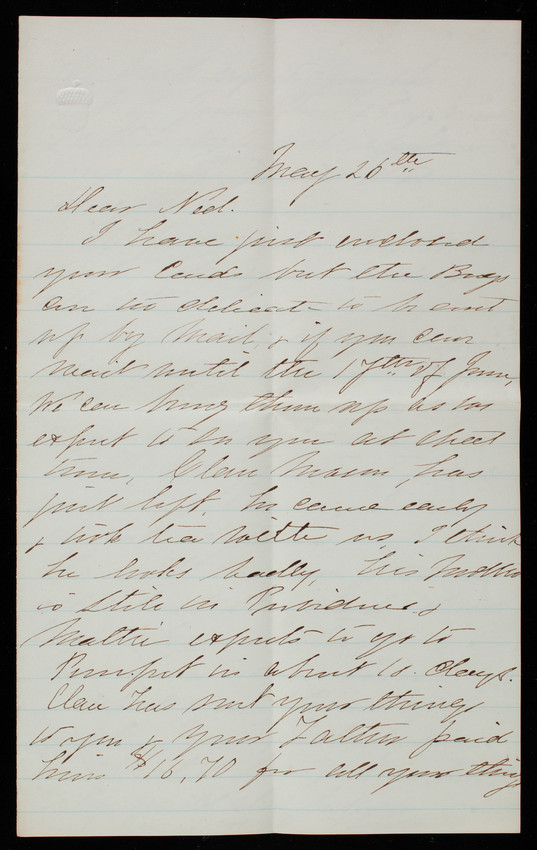 May 26th
Dear Ned.
I have just enclosed
your Cards but the Bugs
are too delicate to be sent
up by Mail, & if you can
wait until the 17th of June,
We can bring them up as we
expect to see you at that
time, Clan has
just left, he came early
& took tea with us, I think
he looks badly, his Mother
is still in Providence &
Mattie expects to go to
Pomfret in about 10 days.
Clan has sent your things
to you & your Father paid
him $16,70 for all your things